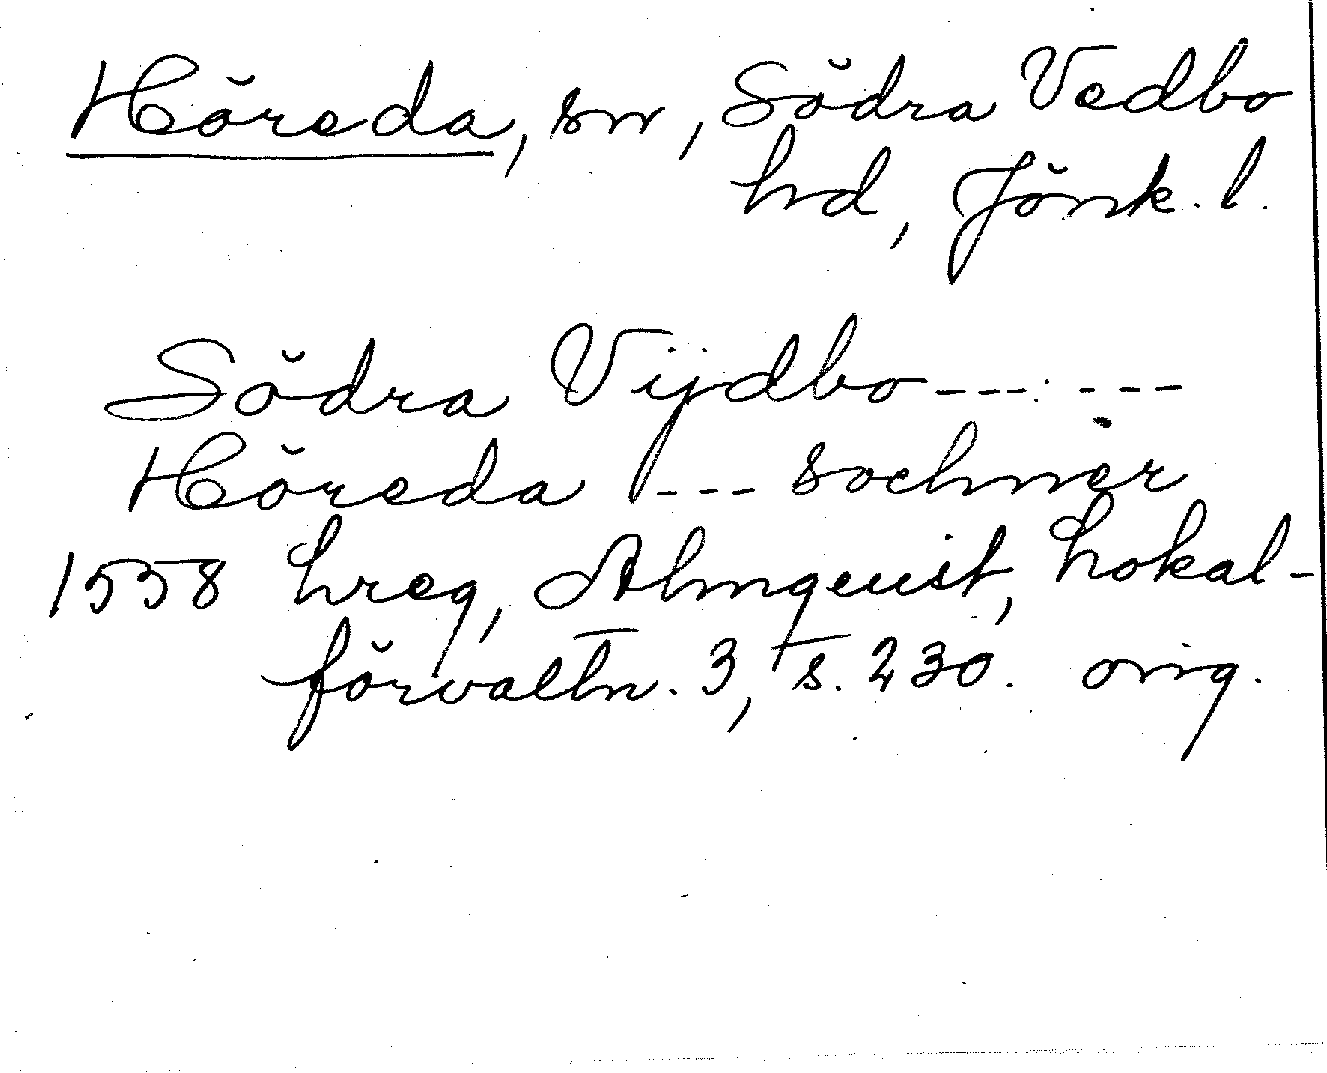 Höreda, sn, Södra Vedbo
hd, Jönk. l.
Södra Vijdbo --- ---
Höreda --- sochner
1558 hreg, Almquist, Lokal-
förvaltn. 3, s. 230. orig.